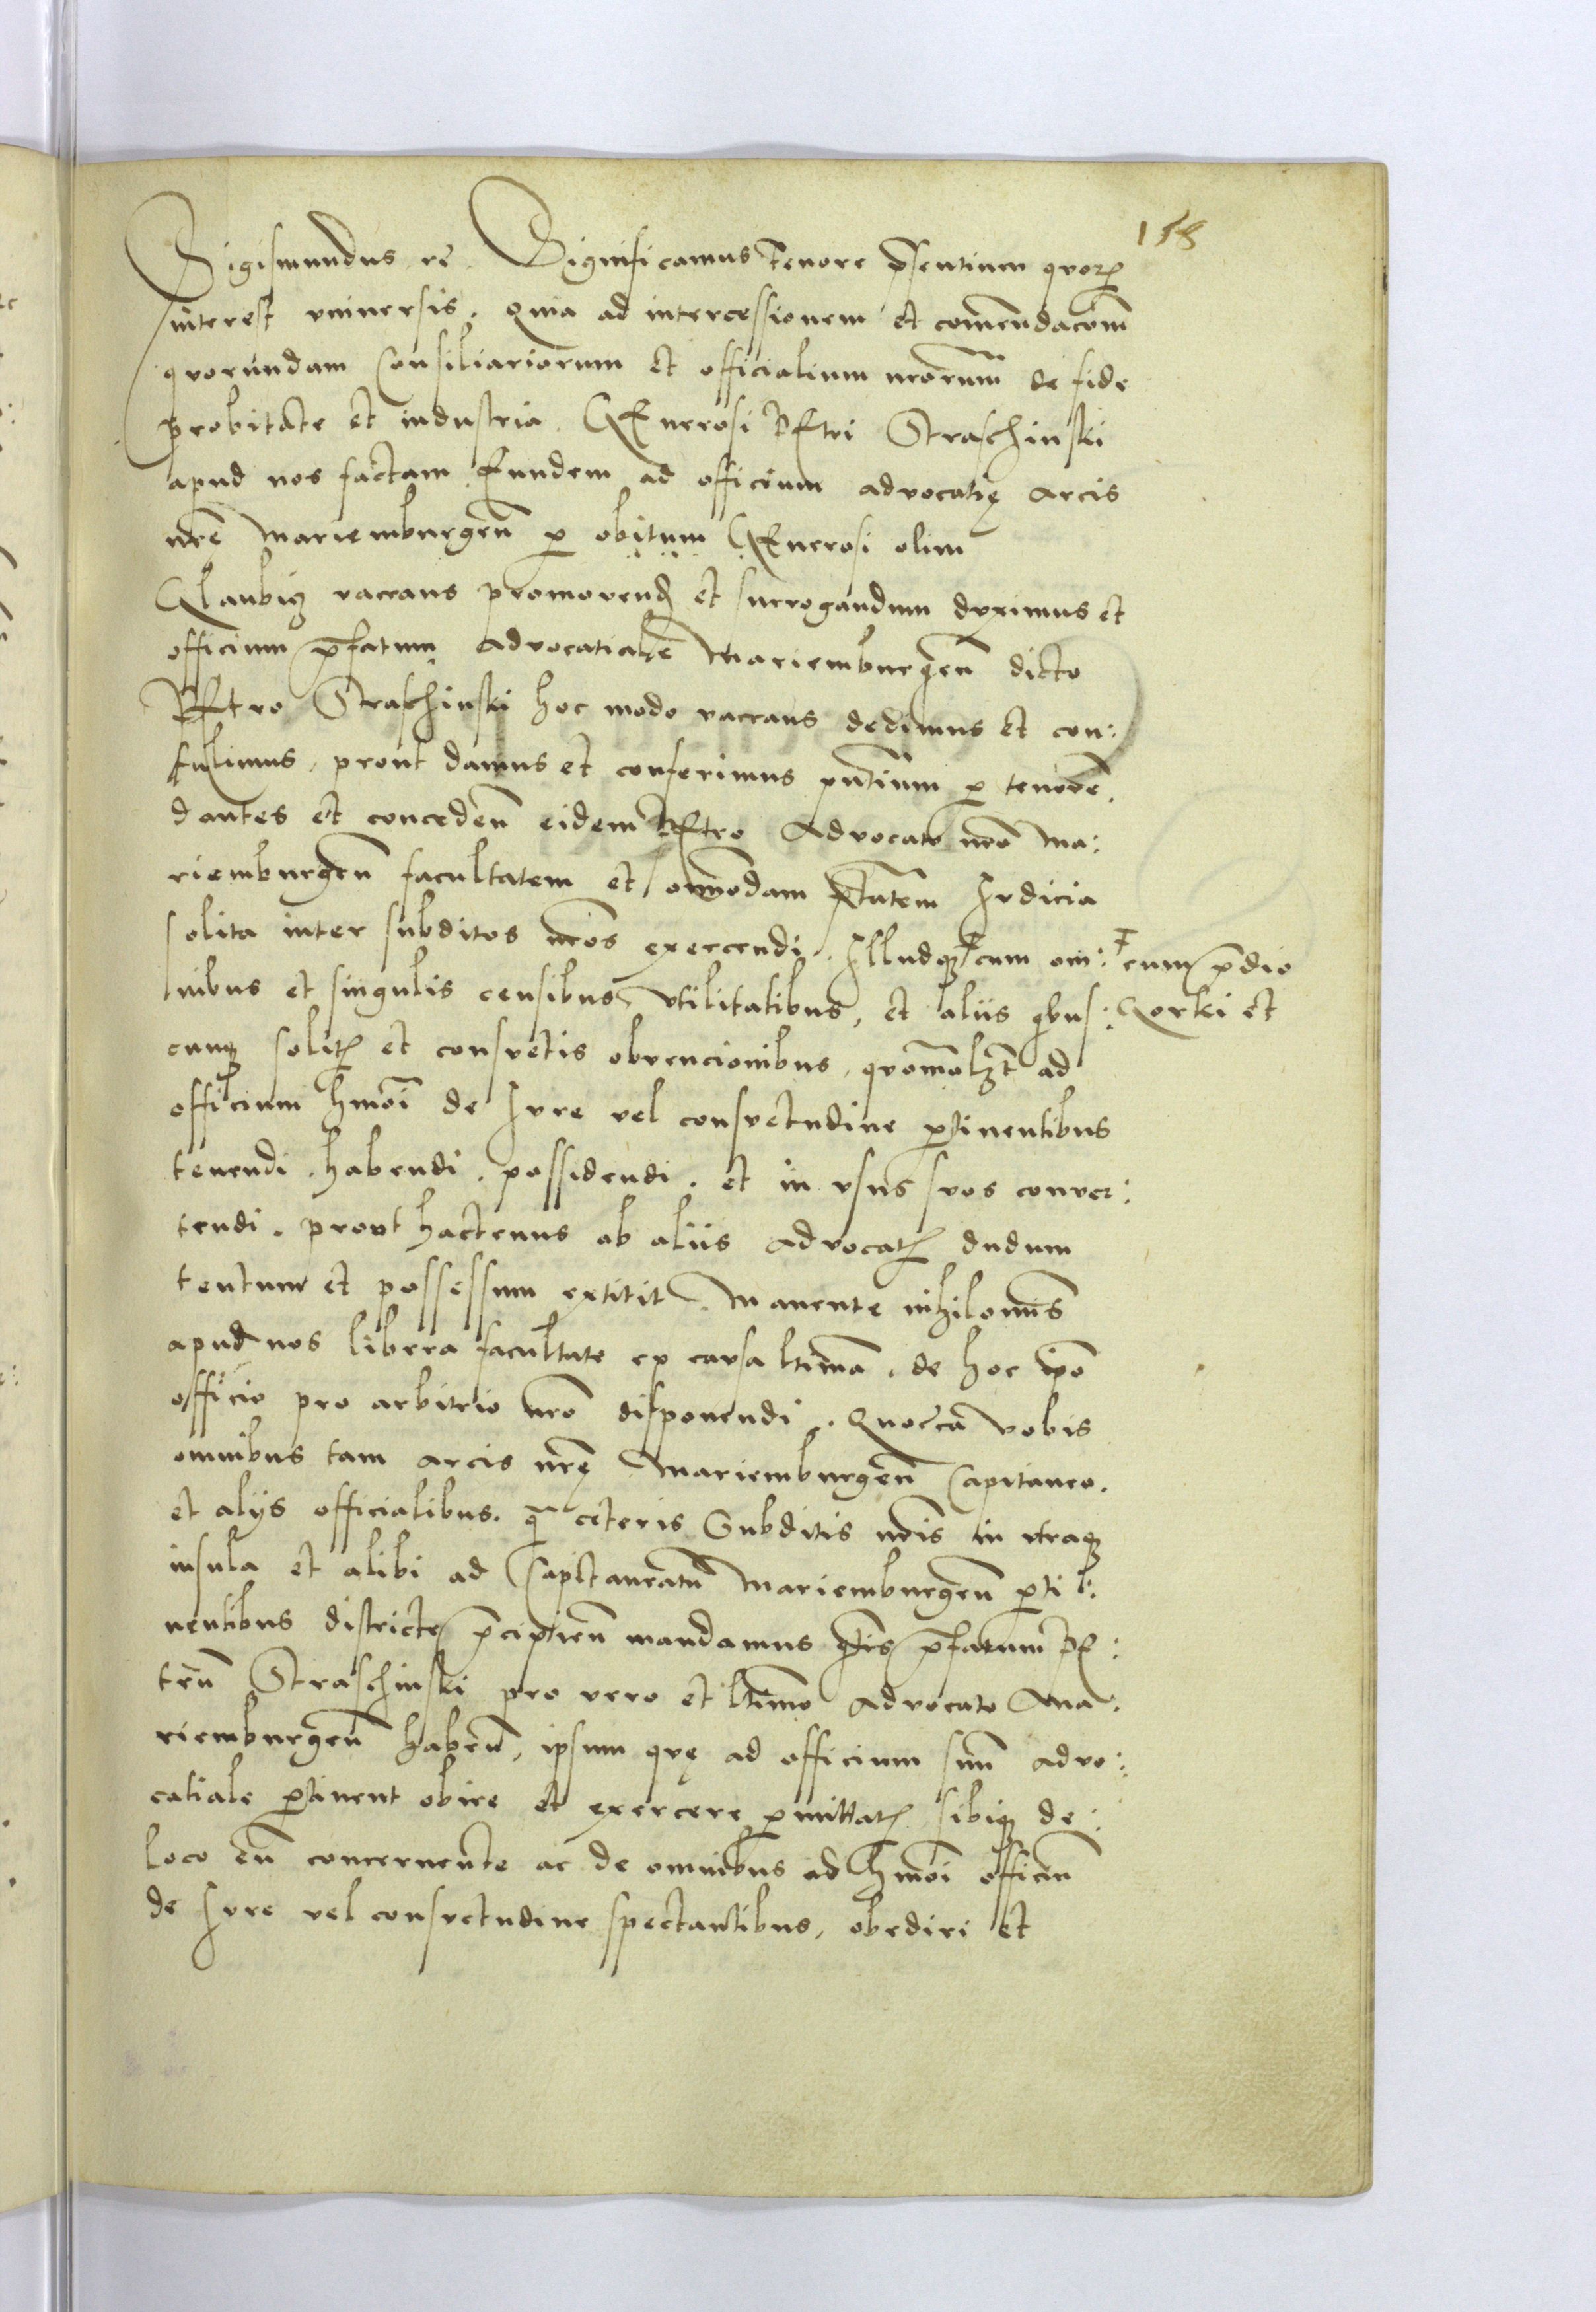 158
Sigismundus rē. Significamus tenore p̄sentium quoꝝ
interest vniuersis. Quia ad intercessionem et comendacōm
quorundam Consiliariorum et officialium nr̄orum de fide
probitate et industria GEnerosi PEtri Straschinski
apud nos factam Eundem ad officium advocatię arcis
nr̄e Mariemburgeñ ꝑ obitum GEnerosi olim
Glaubiz vacans promovendꝫ et surrogandum duximus et
officium p̄fatum advocatialē Mariemburgeñ dicto
PEtro Straschinski hoc modo vacans dedimus et con:
tulimus, prout damus et conferimus pñtium ꝑ tenorē.
dantes et concedeñ eidem PEtro Advocato nr̄o Ma:
riemburgeñ facultatem et om̄odam p̄tātem Iudicia
solita inter subditos nr̄os exercendi. Illudqꝫ ⸸ cum om:
nibus et singulis censibus vtilitatibus, et aliis qbus:
⸸ cum p̄dio
Gorki et
cunqꝫ solitꝭ et consuetis obuencionibus, quomōlꝫt ad
officium hmōi de Iure vel consuetudine ꝑtinentibus
tenendi. habendi. possidendi. et in vsus suos conuer:
tendi. prout hactenus ab aliis advocatꝭ dudum
tentum et possessum extitit. Manente nihilomīs
apud nos libera facultate ex causa ltīma. de hoc ip̄o
officio pro arbitrio nr̄o disponendi. Quocca vobis
omnibus tam arcis nr̄ę Mariemburgeñ Capitaneo.
et alijs officialibus. q̄ ceteris Subditis nr̄is in vtraqꝫ
insula et alibi ad Capitaneatū Mariemburgeñ ꝑti:
nentibus districte p̄cipieñ mandamus qtīs p̄fatum PE:
trū Straschinski pro vero et ltīmo Advocato Ma:
riemburgeñ habeñ, ipsum quę ad officium suū advo:
catiale ꝑtinent obire et exercere ꝑmittatꝭ sibiqꝫ de:
loco eū concernente ac de omnibus ad hmōi officiū
de Iure vel consuetudine spectantibus, obediri et